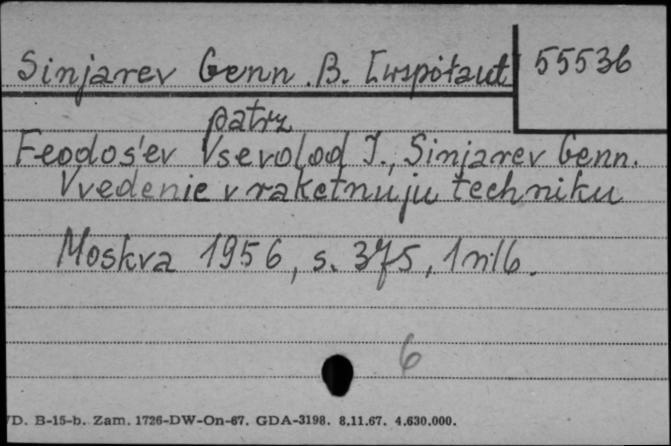 Sinjarev Genn. B. [współaut]
55536
patrz
Feodos'ev Vsevolod I., Sinjarev Genn.
Vvedenie v raketnuju techniku
Moskva 1956, s. 375, 1 nlb.
6
D. B-15-b. Zam. 1726-DW-On-67. GDA-3198. 8.11.67. 4.630.000.